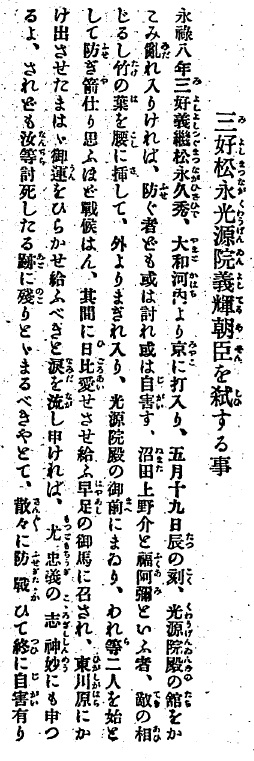 三好松永光源院義輝朝臣を弑する事
永祿八年三好義繼松永久秀、大和河內より京に打入り、五月十九日辰の刻、光源院殿の館をか
こみ亂れ入りければ、防ぐ者ども或は討れ或は自害す、沼田上野介と福阿彌といふ者、敵の相
じるし竹の葉を腰に揷して、外よりまぎれ入り、光源院殿の御前にまゐり、われ等二人を始と
して防ぎ箭仕り思ふほど戰候はん、其間に日比愛せさせ給ふ早足の御馬に召され、東川原にか
け出させたまはゞ御運をひらかせ給ふべきと淚を流し申ければ、尤忠義の志神妙にも申つ
るよ、されども汝等討死したる跡に殘りとゞまるべきやとて、散々に防戰ひて終に自害有り